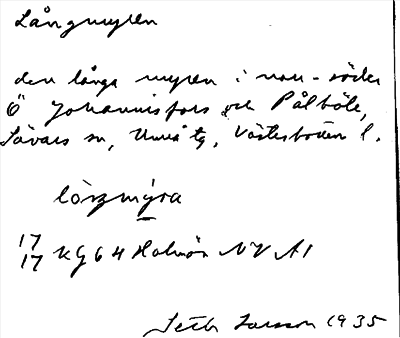 Långmyren
den långa myren i norr-söder
Ö Johannisfors och Pålböle,
Sävars sn, Umeå tg, Västerbotten l.
lårgmýra
17
17 KG 64 Holmön NV A1
Seth Larsson 1935